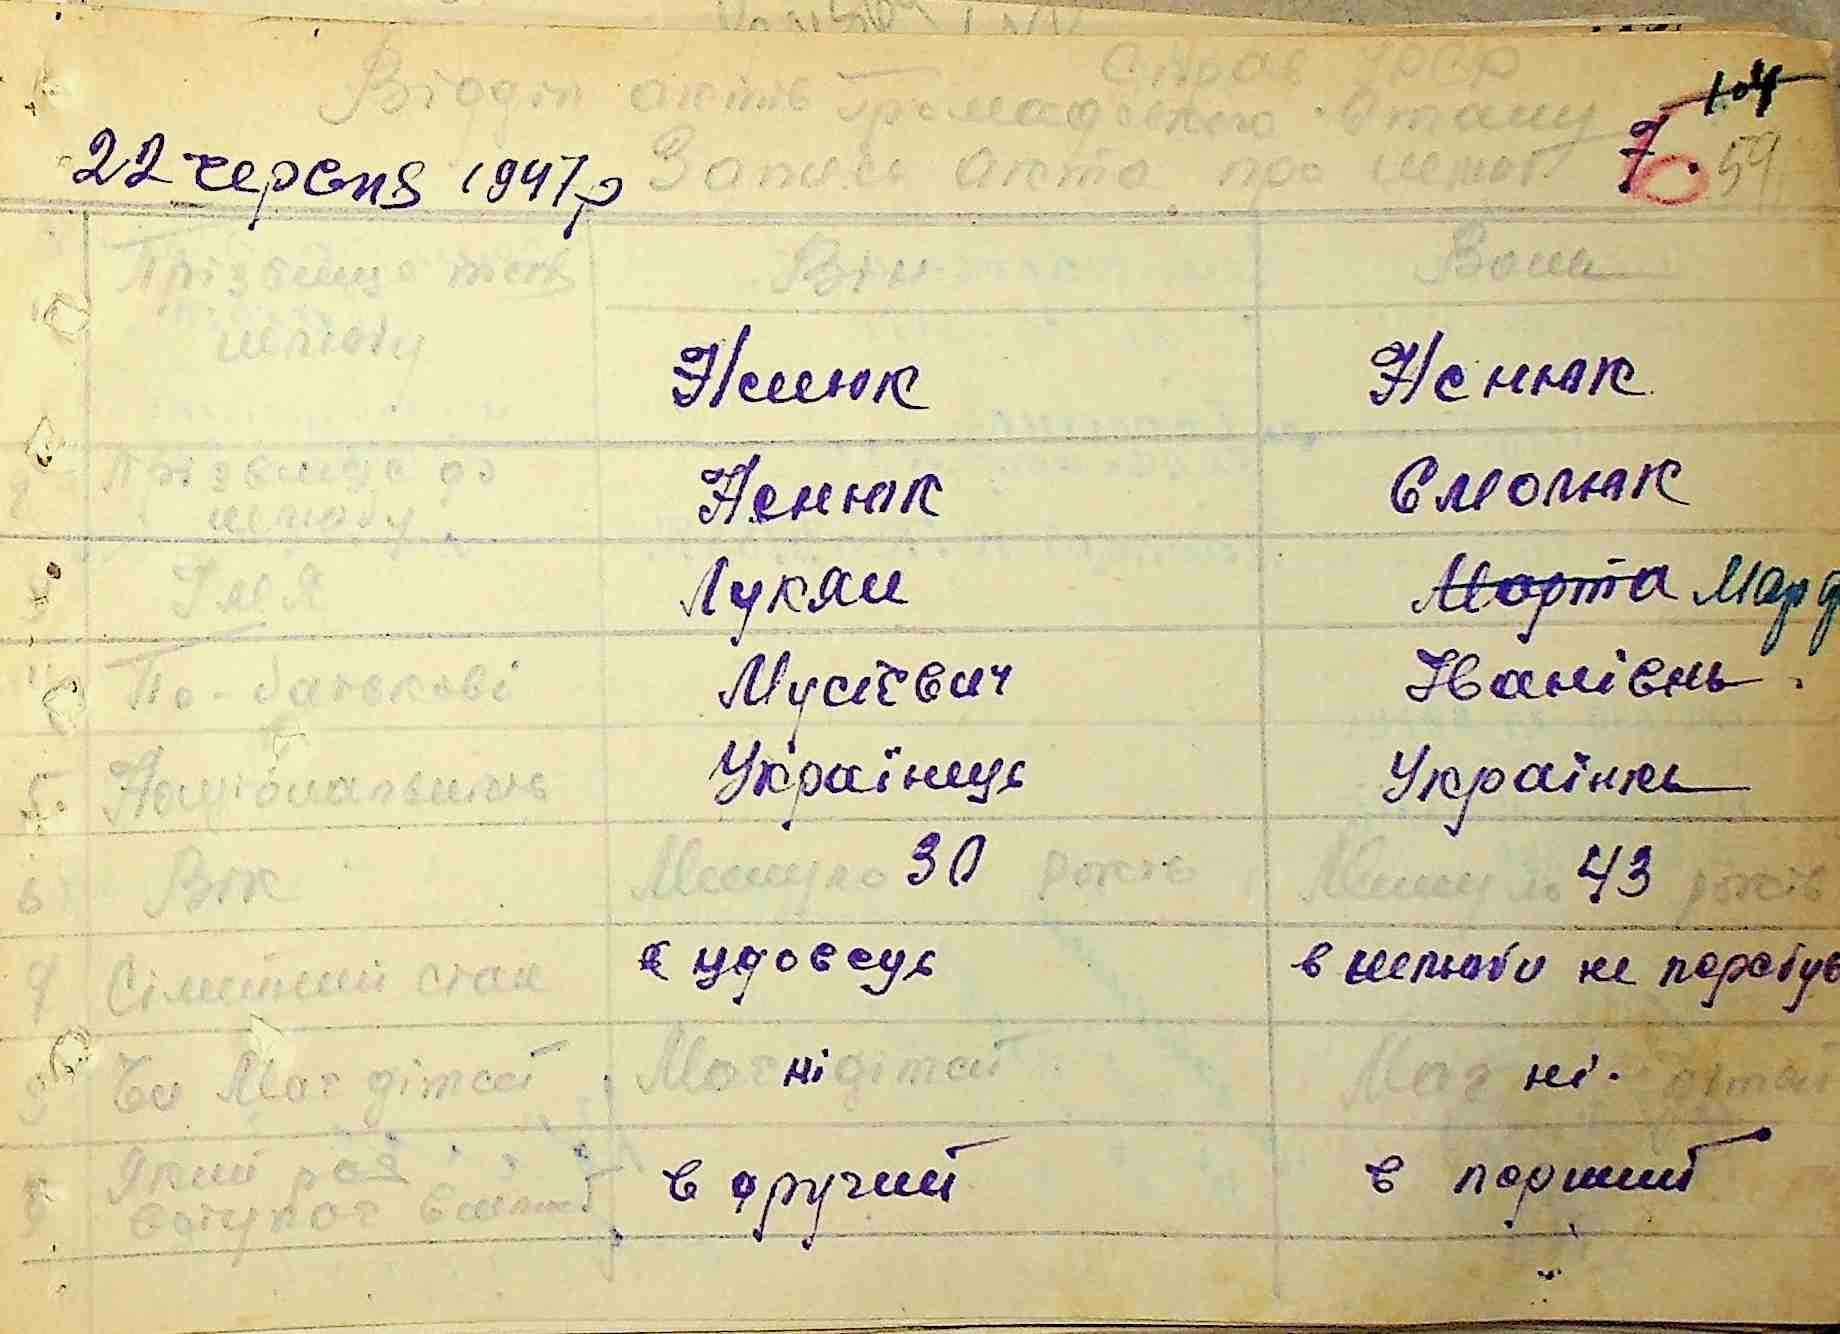 Справ УРСР
104
Відділ актів Громадського Стану
22 червня 1947 р Запись акта про шлюб 7. 59
Прізвище після шлюбу Він Вона
Ненюк Ненюк
Прізвище до шлюбу Ненюк Смолюк
Імя Лукян Марта Марф
По-батькові Мусієвич Іванівнь
5. Національність Українець Українкь
6 Вік Минуло 30 років Минуло 43 років
Сімейний стан є удовець в шлюби не перебув
Чи Має дітей Має ні дітей Має ні. дітей
Який раз вступає в шлюб в другий в перший